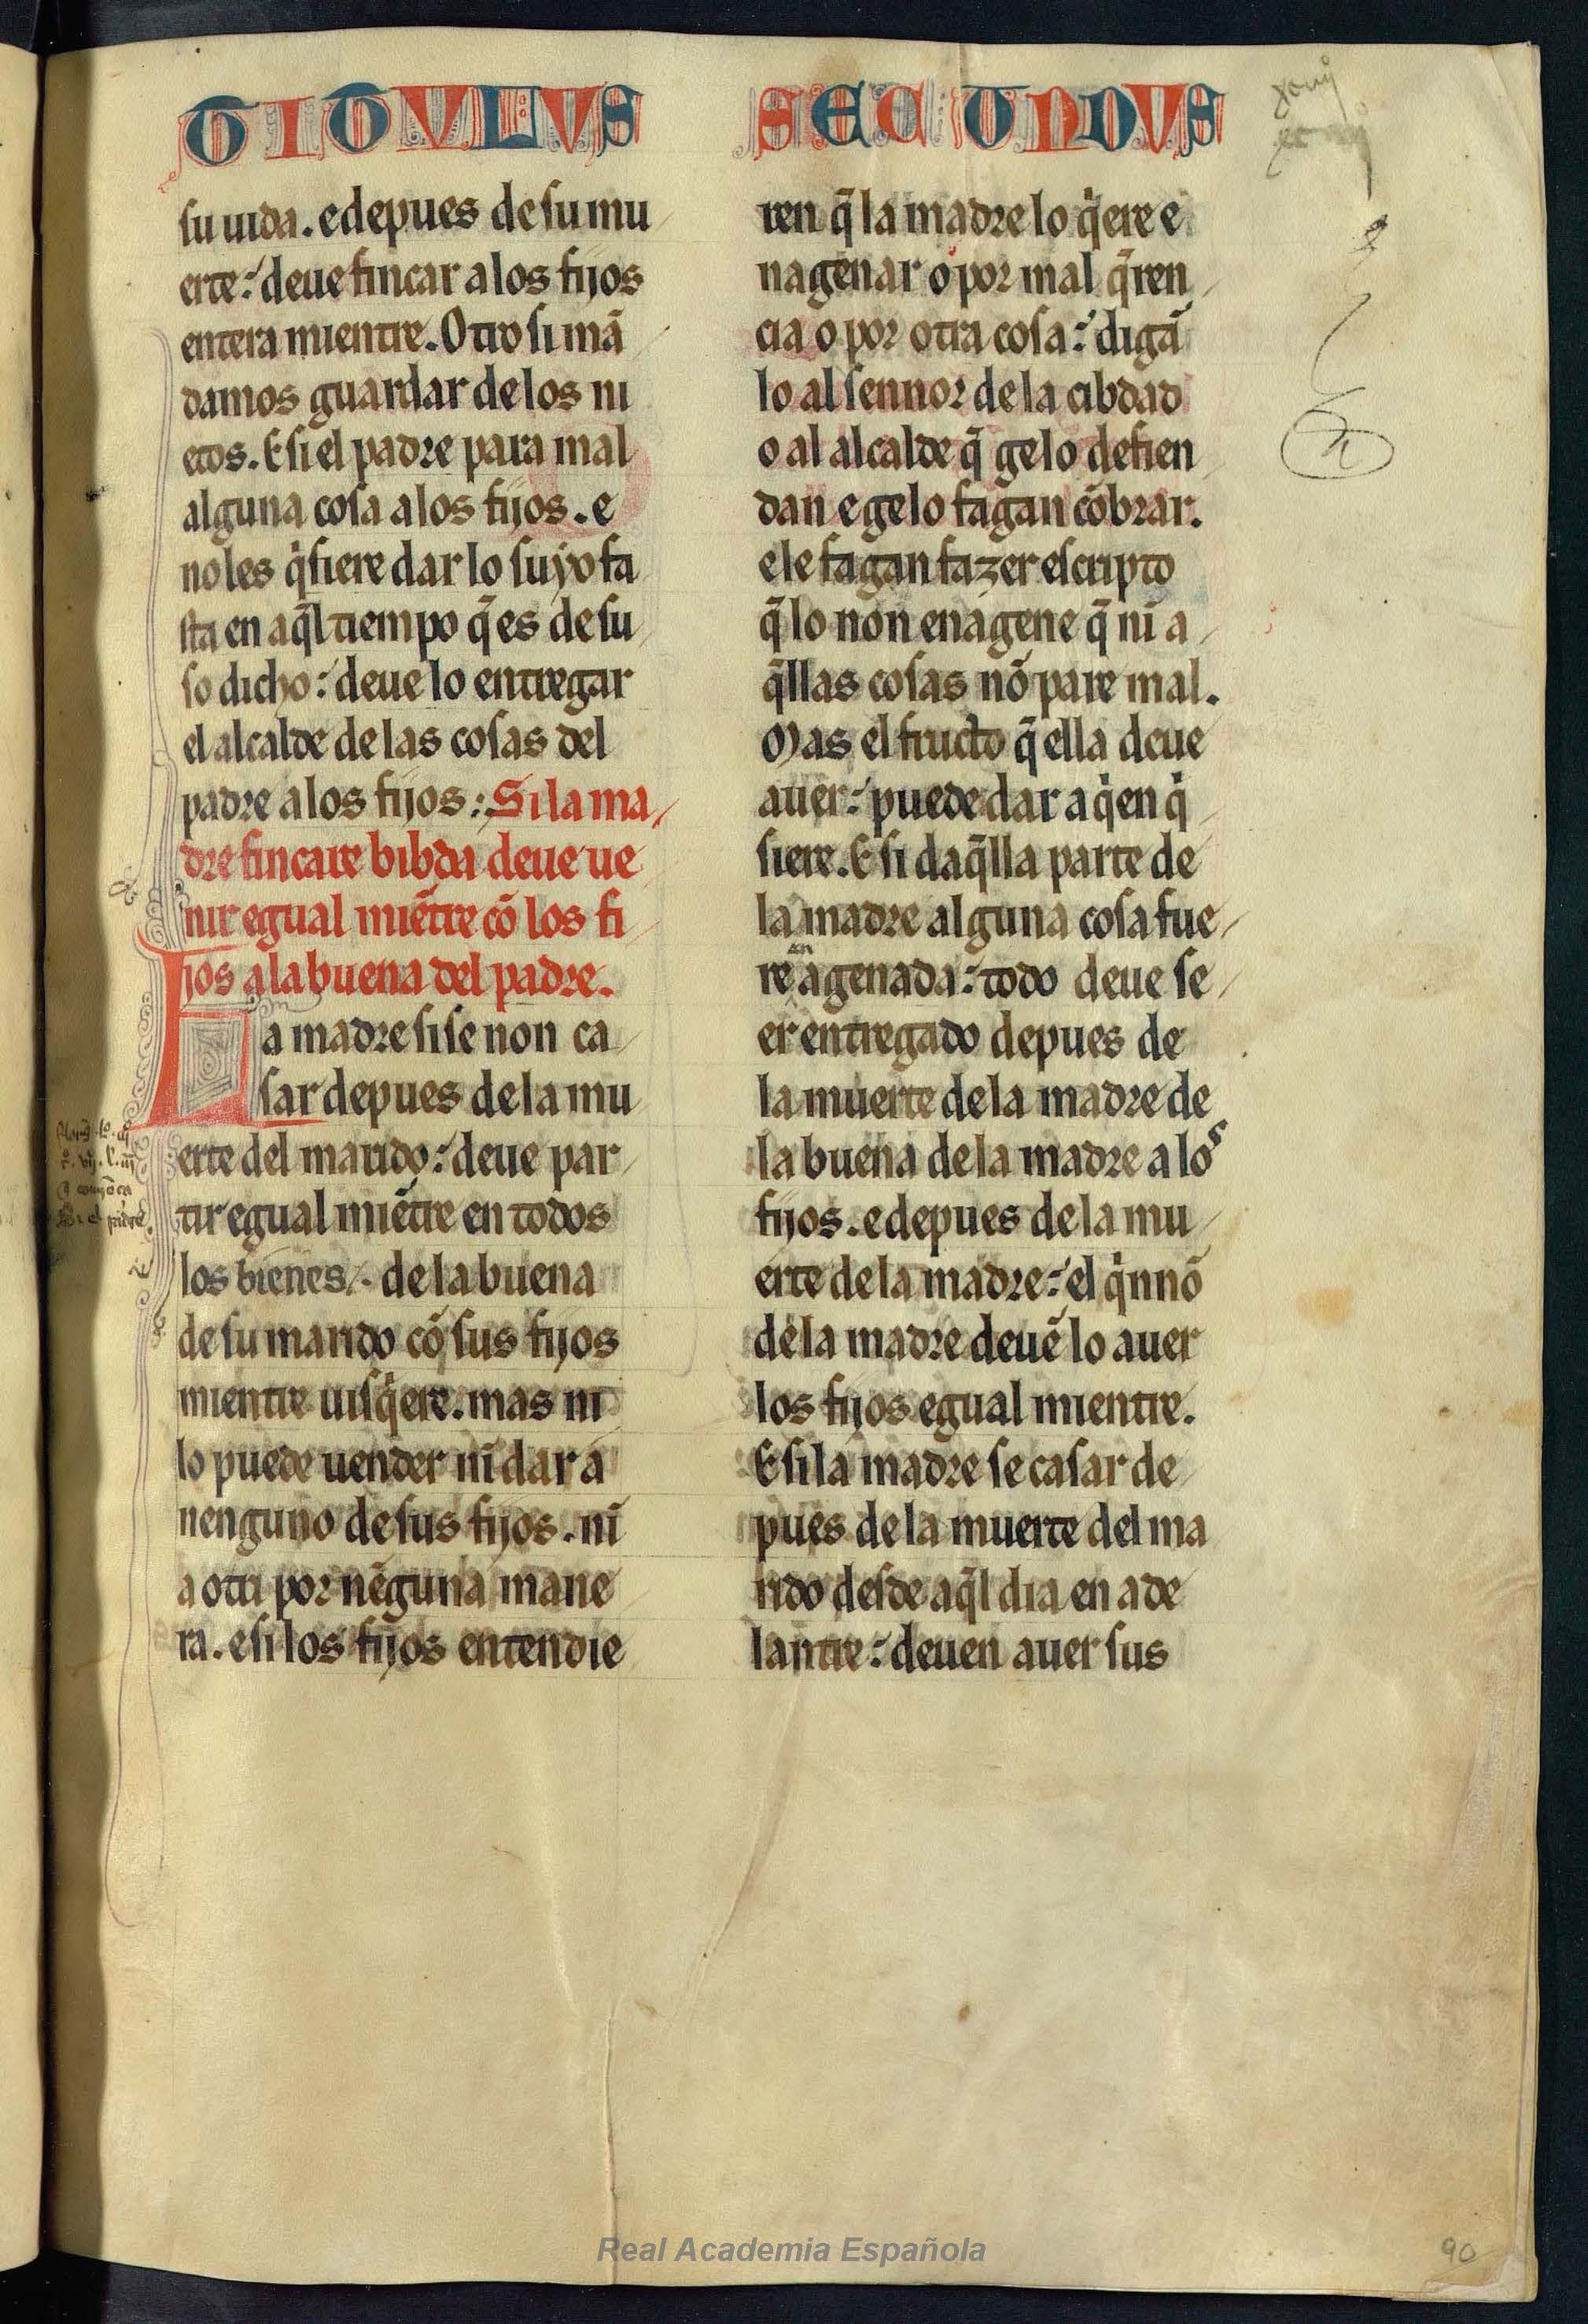 TITULUS SECUNDUS
su uida. e depues de su mu
erte: deue fincar a los fijos
entera mientre. Otro si mã
damos guardar de los ni
etos. E si el padre para mal
alguna cosa a los fijos. e
no les q̇siere dar lo suyo fa
sta en aq̃l tiempo q̃ es de su
so dicho: deue lo entregar
el alcalde de las cosas del
padre a los fijos: Si la ma
dre fincare bibda deue ue
nir egual miẽtre cõ los fi
jos a la buena del padre.
La madre si se non ca
sar depues de la mu
erte del marido: deue par
tir egual miẽtre en todos
los bienes. de la buena
de su marido cõ sus fijos
mientre uisq̇ere. mas nĩ
lo puede uender nĩ dar a
nenguno de sus fijos. nĩ
a otri por nẽguna mane
ra. e si los fijos entendie
ren q̃ la madre lo q̇ere e
nagenar o por mal q̃ren
cia o por otra cosa: digã
lo al sennor de la cibdad
o al alcalde q̃ gelo defien
dan e gelo fagan cõbrar.
e le fagan fazer escripto
q̃ lo non enagene q̃ nĩ a
q̃llas cosas nõ pare mal.
Mas el fructo q̃ ella deue
auer: puede dar a q̇en q̇
siere. E si daq̃lla parte de
la madre alguna cosa fue
re enagenada: todo deue se
er entregado depues de
la muerte de la madre de
la buena de la madre a los
fijos. e depues de la mu
erte de la madre: el q̇nnõ
de la madre deuẽ lo auer
los fijos egual mientre.
E si la madre se casar de
pues de la muerte del ma
rido desde aq̃l dia en ade
lantre: deuen auer sus
Real Academia Española
90